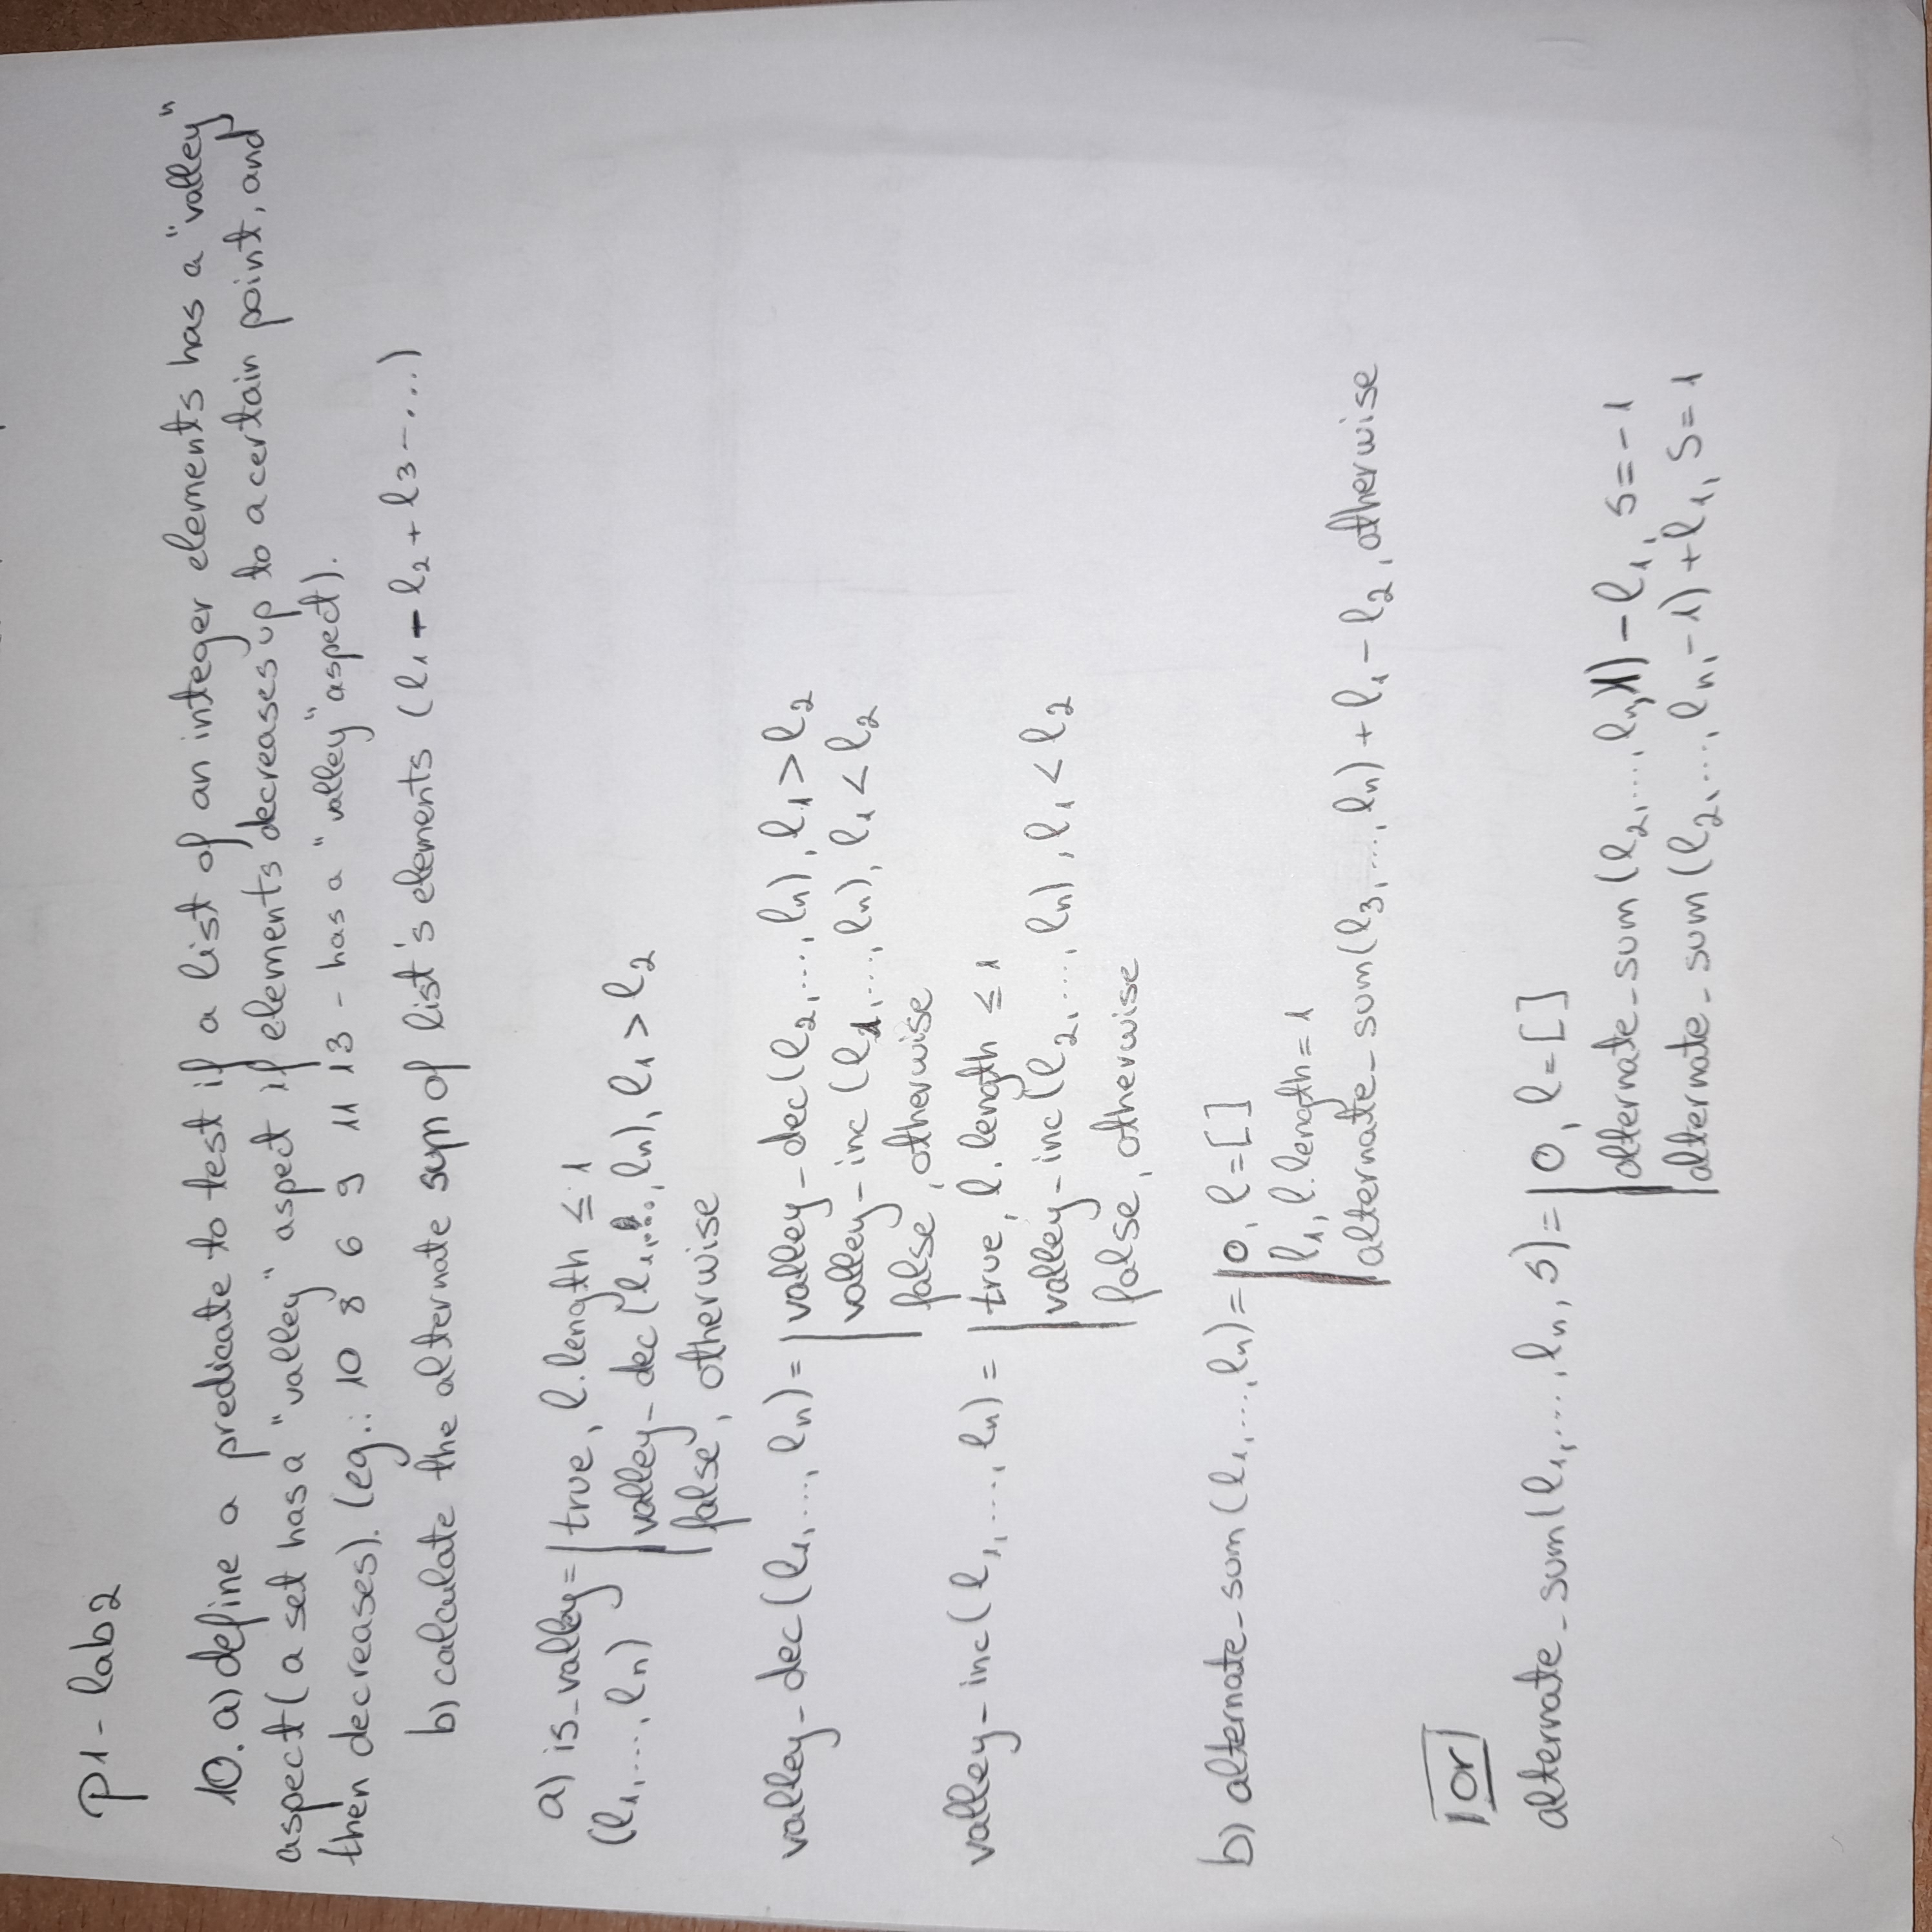 p1 - lab2
10. a) define a predicate to test if a list of an integer elements has a "valley"
aspect (a set has a "valley" aspect if elements decreases up to a certain point, and
then decreases). (eg.: 10 8 6 9 11 13 - has a "valley" aspect).
b) calculate the alternate sum of list's elements (l1 - l2 + l3 - ...)
a) is_valley = | true, l.length ≤ 1
(l1, ..., ln) | valley_dec(l1, ..., ln), l1 > l2
| false, otherwise
valley_dec(l1, ..., ln) = | valley_dec(l2, ..., ln), l1 > l2
| valley_inc(l1, ..., ln), l1 < l2
| false, otherwise
valley_inc(l1, ..., ln) = | true, l.length ≤ 1
| valley_inc(l2, ..., ln), l1 < l2
| false, otherwise
b) alternate_sum(l1, ..., ln) = | 0, l = []
| l1, l.length = 1
| alternate_sum(l3, ..., ln) + l1 - l2, otherwise
|or|
alternate_sum(l1, ..., ln, S) = | 0, l = []
| alternate_sum(l2, ..., ln, 1) - l1, S = -1
| alternate_sum(l2, ..., ln, -1) + l1, S = 1